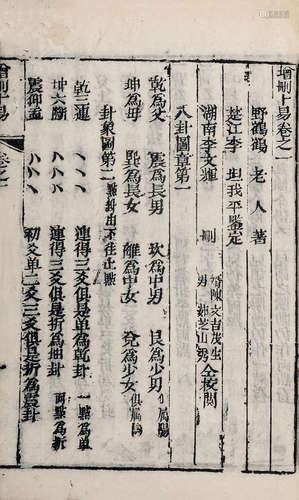 增刪卜易卷之一
野鶴老人著
楚江李坦我平鑑定
湖南李文輝 刪
壻陳文吉茂生
男 茹芝山秀 仝校閱
八卦圖章第一
乾為父 震為長男 坎為中男 艮為少男 俱屬陽
坤為母 巽為長女 離為中女 兌為少女 俱屬陰
卦象圖第二
乾三連 連得三爻俱是單為乾卦 一點為單
坤六斷 連得三爻俱是折為坤卦 兩點為折
震仰盂 初爻單二爻三爻俱是折為震卦
增刪卜易
卷之一